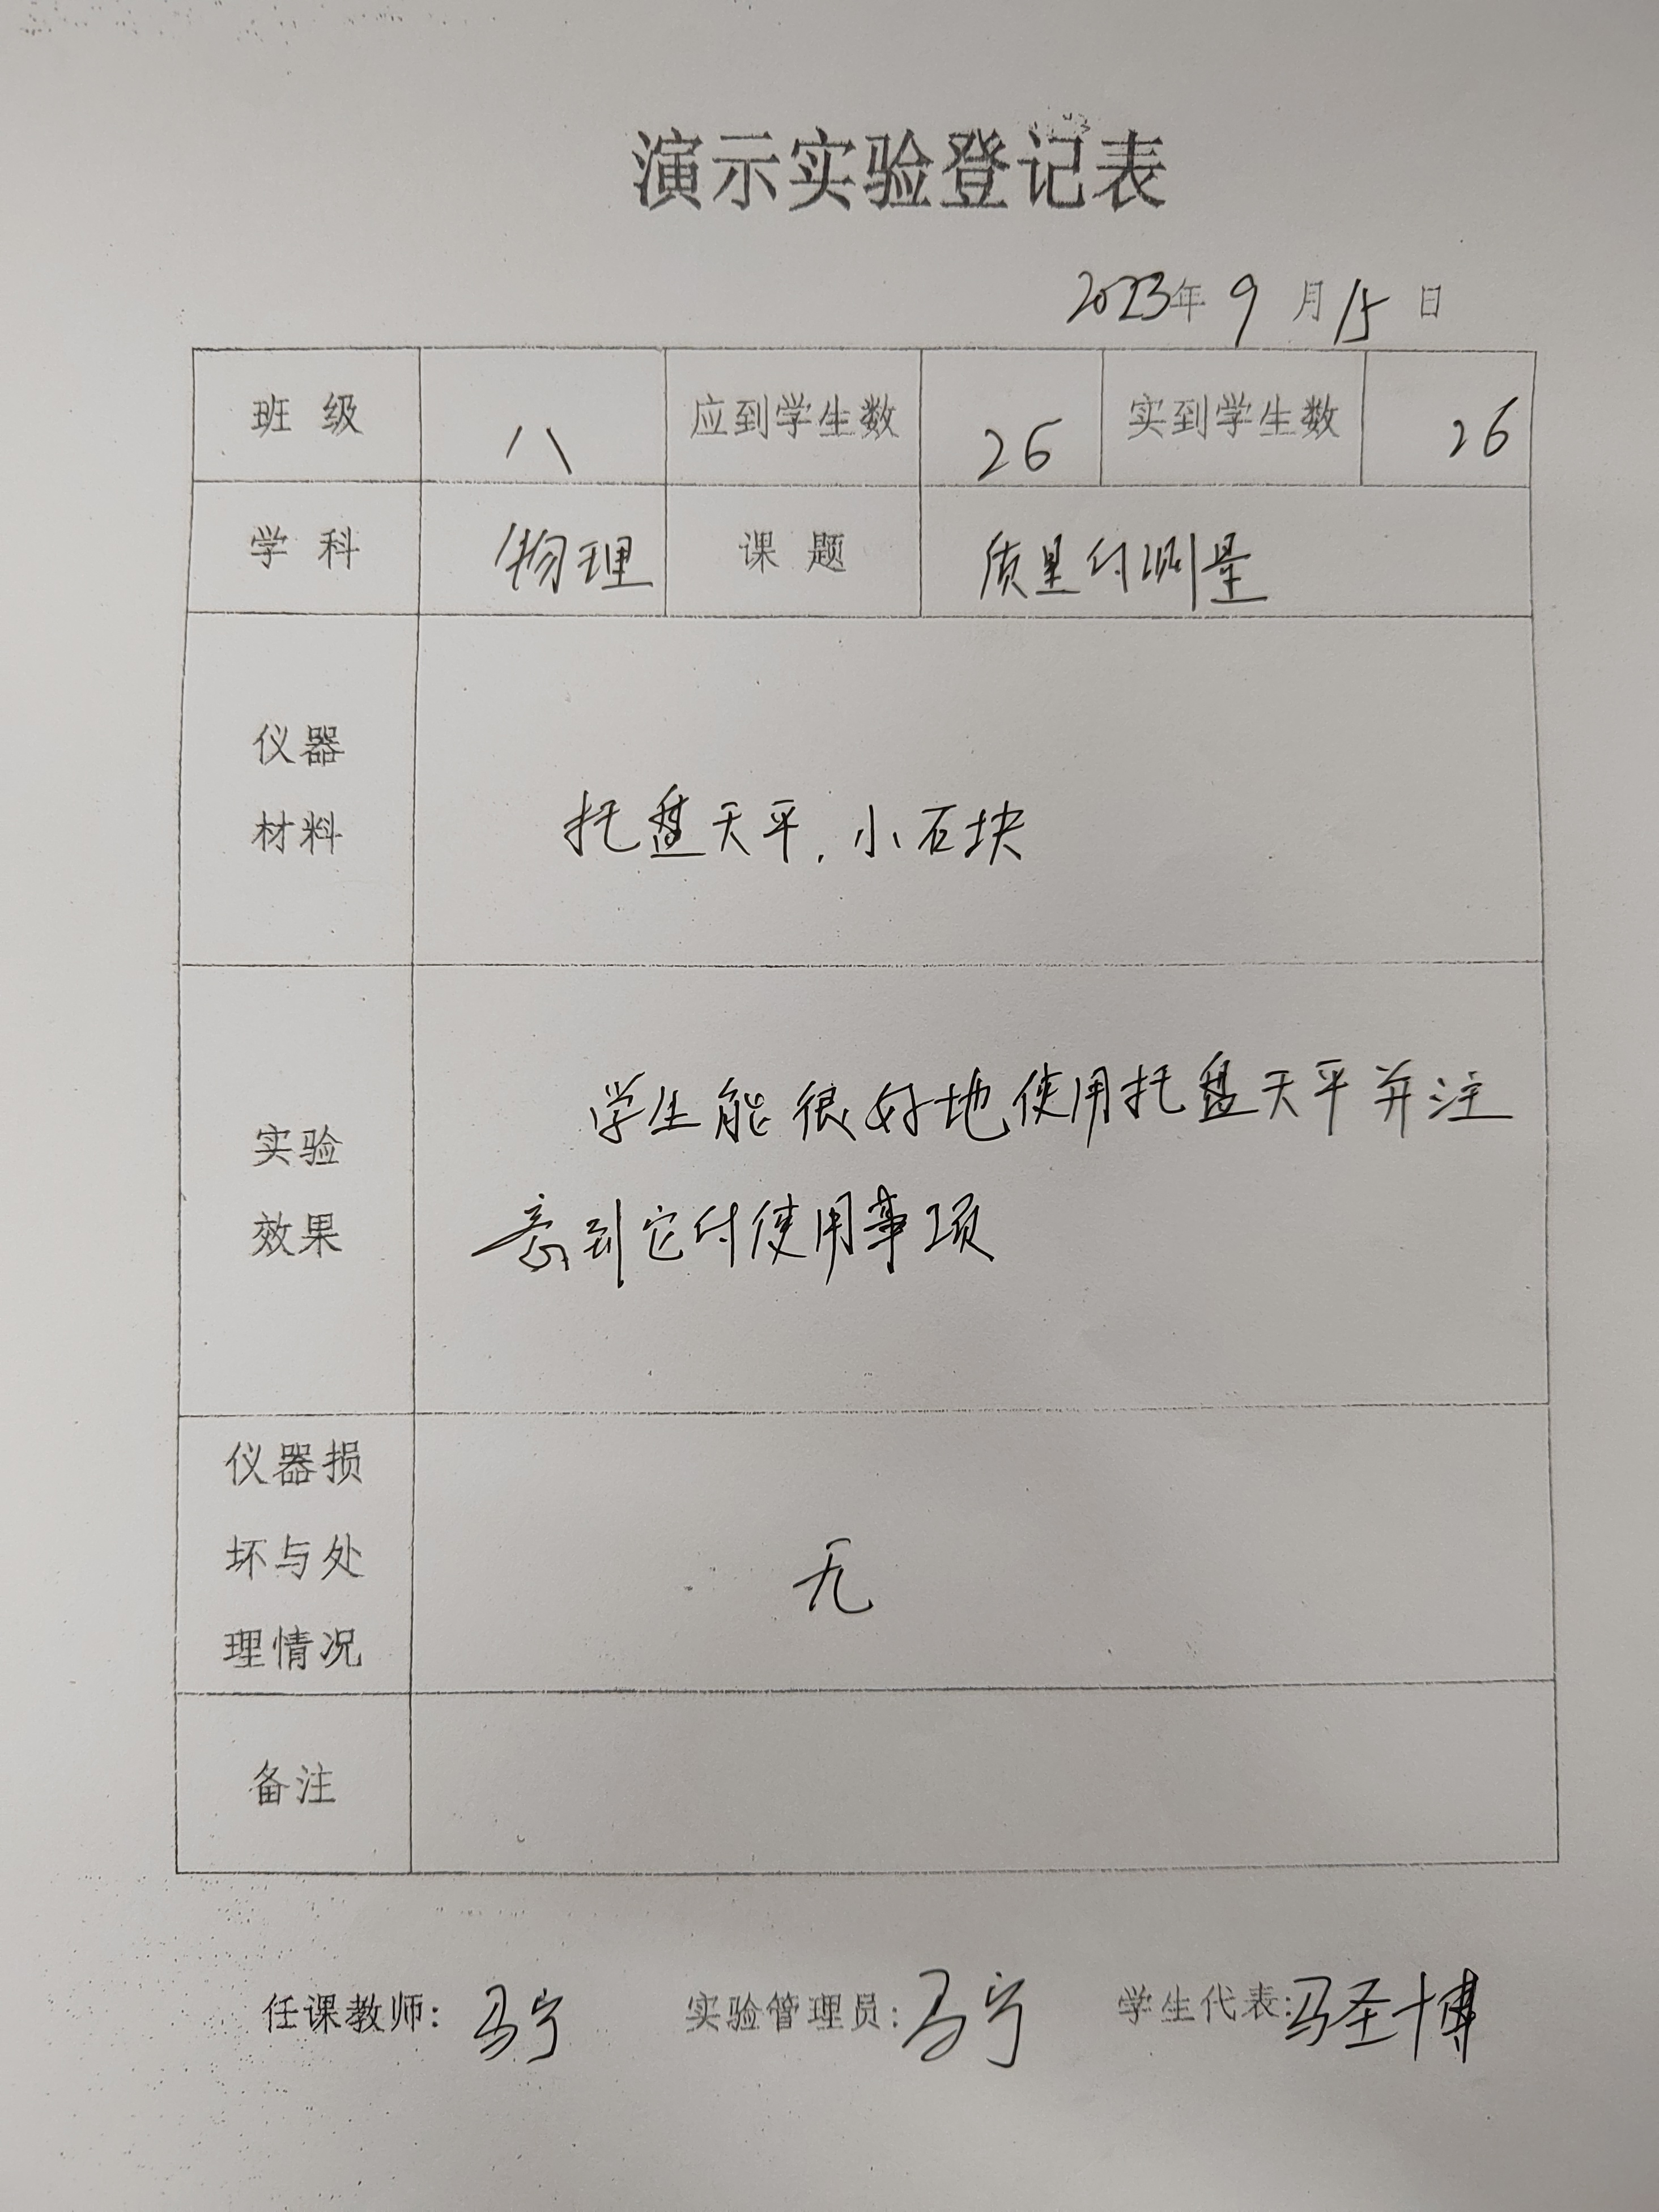 演示实验登记表
2023年9月15日
班级 八 应到学生数 26 实到学生数 26
学科 物理 课题 质量的测量
仪器
材料
托盘天平,小石块
实验
效果
学生能很好地使用托盘天平并注
意到它的使用事项
仪器损
坏与处
理情况
无
备注
任课教师:马宁 实验管理员:马宁 学生代表:马圣博